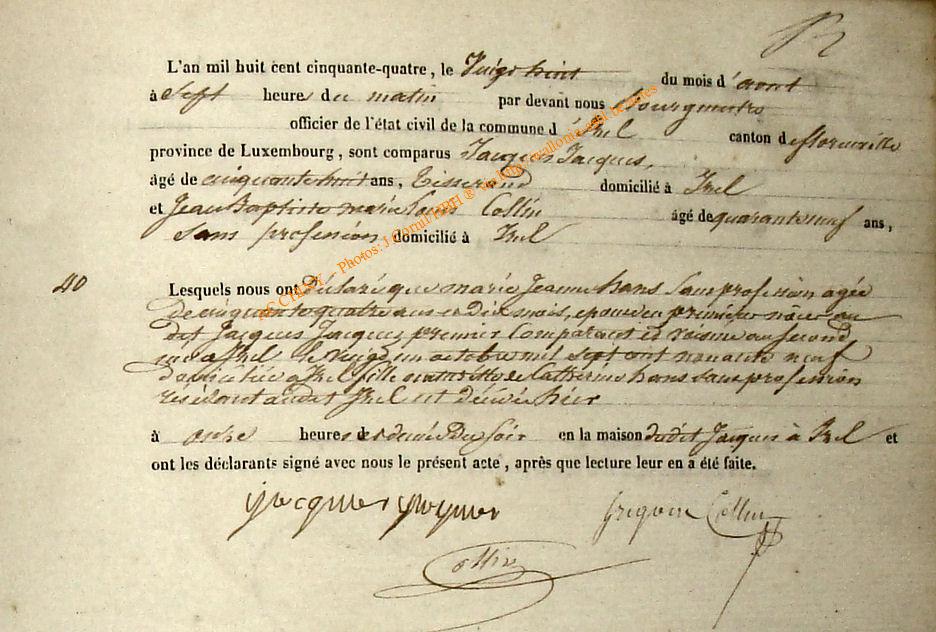 L'an mil huit cent cinquante-quatre, le vingt huit du mois d'aout
à Sept heures du matin par devant nous bourgmestre
officier de l'état civil de la commune d'Izel canton de florenville
province de Luxembourg, sont comparus Jacques Jacques,
âgé de cinquante huit ans, Tisserand domicilié à Izel
et Jean Baptiste marie Louis Collin âgé de quarante neuf ans,
Sans profession domicilié à Izel
40
Lesquels nous ont déclaré que marie Jeanne hans Sans profession agée
De cinquante quatre ans et dix mois, épouse en premier
dit Jacques Jacques premier Comparant et voisine au Second
née à Izel le vingt un octobre mil sept cent nonante neuf
domiciliée à Izel fille naturelle de Catherine hans sans profession
résidant audit Izel est décédée hier
à onze heures et demie Du Soir en la maison dudit Jacques à Izel et
ont les déclarants signé avec nous le présent acte, après que lecture leur en a été faite.
jacques
Collin
Collin
Photos: J. Cornil